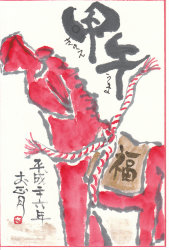 甲午
きのえ
うま
福
平成二十六年
お正月